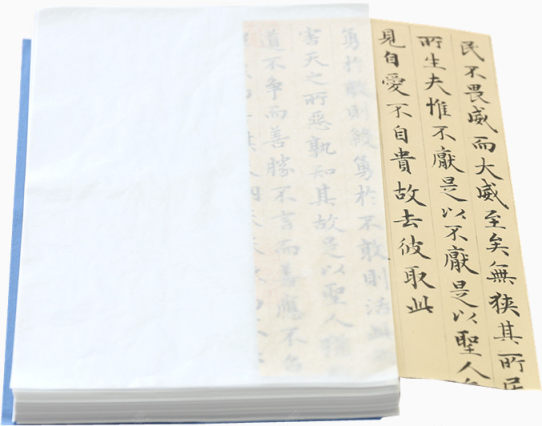 民不畏威而大威至矣無狹其所居
所生夫惟不厭是以不厭是以聖人
見自愛不自貴故去彼取此
勇於敢則殺勇於不敢則活此
害天之所惡孰知其故是以聖人猶
道不爭而善勝不言而善應不召